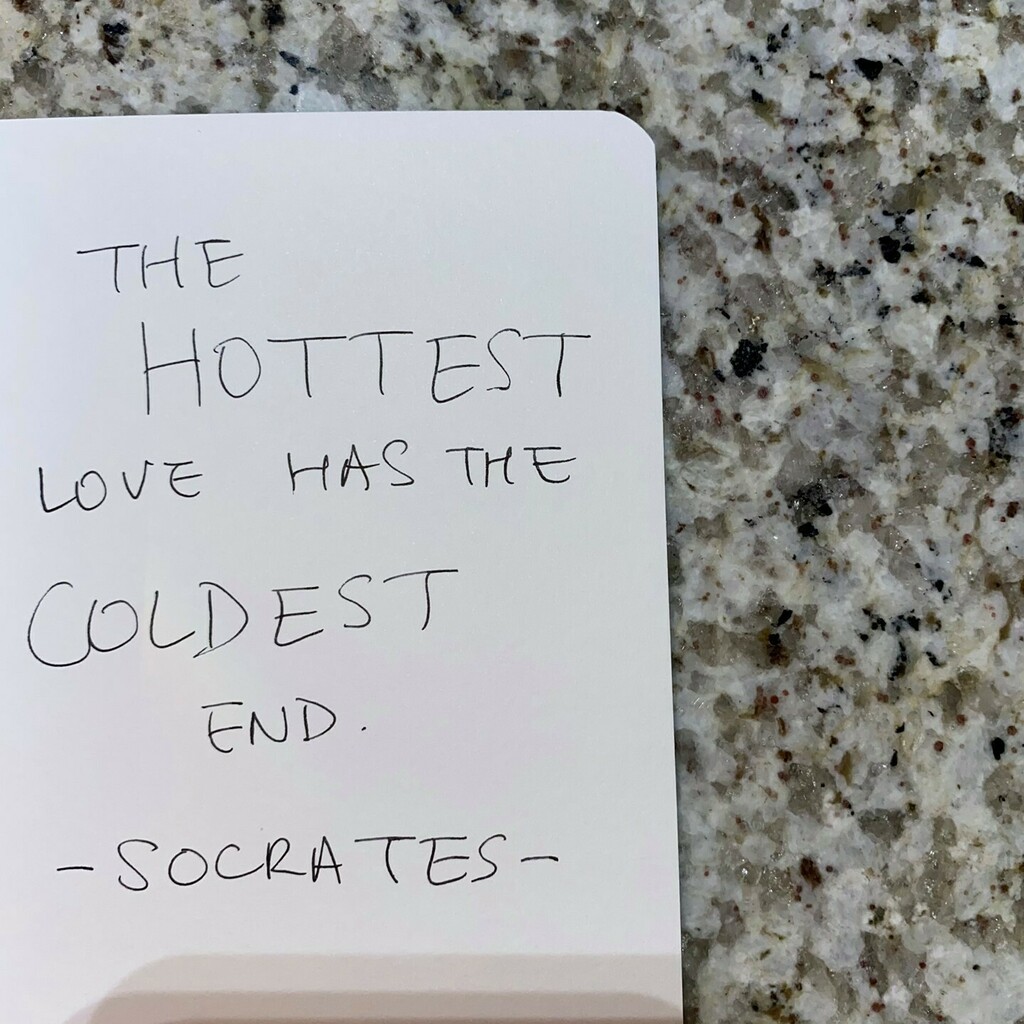 THE
HOTTEST
LOVE HAS THE
COLDEST
END.
- SOCRATES -